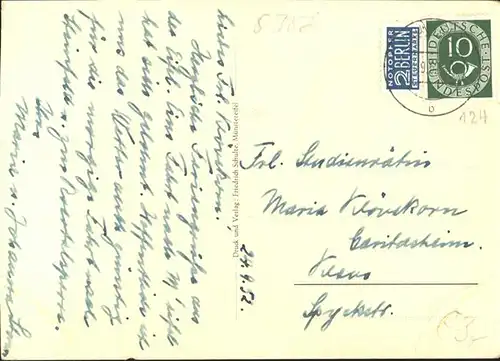 5312
Liebes Frl. Klönskorn,
Herzliche Feriengrüße aus
der Eifel. Eine Fahrt nach M'eifel
hat sich gelohnt. Hoffentlich ist
uns das Wetter auch günstig
für die morgige Fahrt nach
Steinfeld u. zur Urfttalsperre.
Ihre
Maria u. Johanna
Druck und Verlag: Friedrich Schulte, Münstereifel
24.4.52.
NOTOPFER
2 BERLIN
STEUERMARKE
DEUTSCHE
10
BUNDESPOST
124
Frl. Studienrätin
Maria Klönskorn
Caritasheim
Kleve
Spyckstr.
E3,-